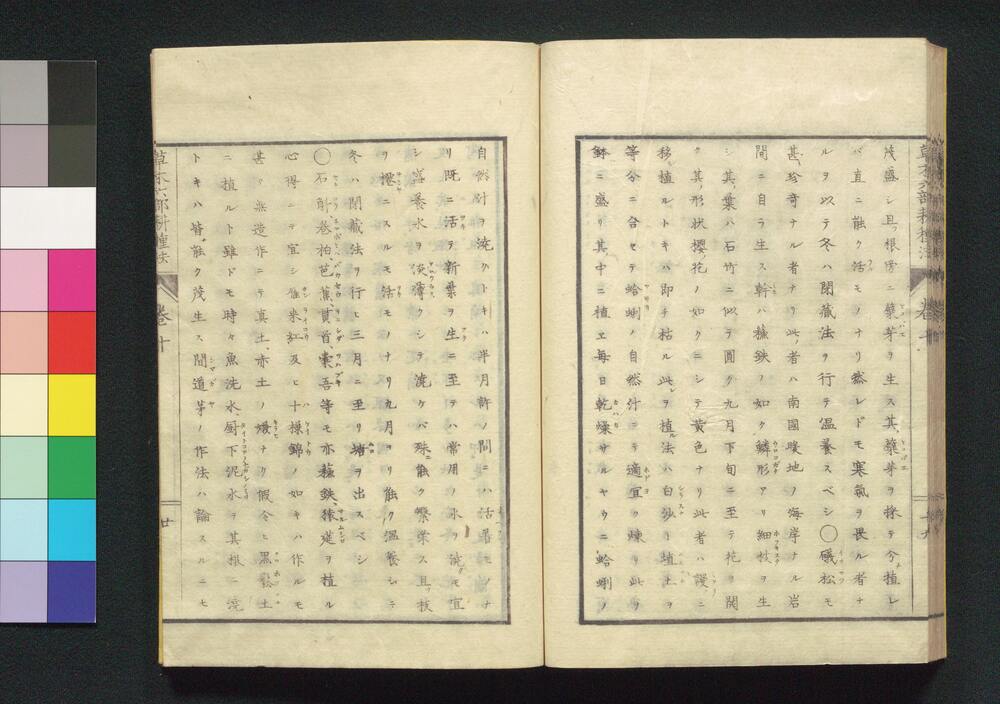 茂盛シ且ツ根傍ニ蘖芽ヲ生ス其蘖芽ヲ採テ分植レ
バ直ニ能ク活モノナリ然レドモ寒氣ヲ畏ル者ナ
ルヲ以テ冬ハ閉藏法ヲ行テ温養スベシ〇礒松モ
甚珍奇ナル者ナリ此者ハ南國暖地ノ海岸ナル岩
間ニ自ラ生ス幹ハ蘓鉄ノ如ク鱗形アリ細枝ヲ生
シ其葉ハ石竹ニ似テ圓ク九月下旬ニ至テ花ヲ開
ク其形状櫻花ノ如クニシテ黄色ナリ此者ハ謾ニ
移植ルトキハ即チ枯ル此ヲ植法ハ白砂ト埴土ヲ
等分ニ合セテ蛤蜊ノ自然汁ニテ適宜ク煉リ此ヲ
鉢ニ盛リ其中ニ植ヱ毎日乾燥サルヤウニ蛤蜊ノ
草木六部耕種法
卷十
十九
自然汁ヲ澆クトキハ半月許ノ間ニハ活着モノナ
リ既ニ活テ新葉ヲ生ニ至テハ常用ノ水ヲ澆モ宜
シ滋養水ヲ淡薄クシテ澆ケバ殊ニ能ク繁栄ス且ツ枝
ヲ㩭ニスルモ活モノナリ九月ヨリ能ク温養シテ
冬ハ閉藏法ヲ行ヒ三月ニ至リ塘ヲ出スベシ
〇石斛卷柏芭蕉貫首槖吾等モ亦蘓鉄猿莚ヲ植ル
心得ニテ宜シ雁来紅及ヒ十様錦ノ如キハ作ルモ
甚タ無造作ニテ真土赤土ノ嫌ナク假令ヒ黒鬆土
ニ植ルト雖ドモ時々魚洗水厨下泥水ヲ其根ニ澆
トキハ皆能ク茂生ス間道茅ノ作法ハ論スルニモ
草木六部耕種法
卷十
廿